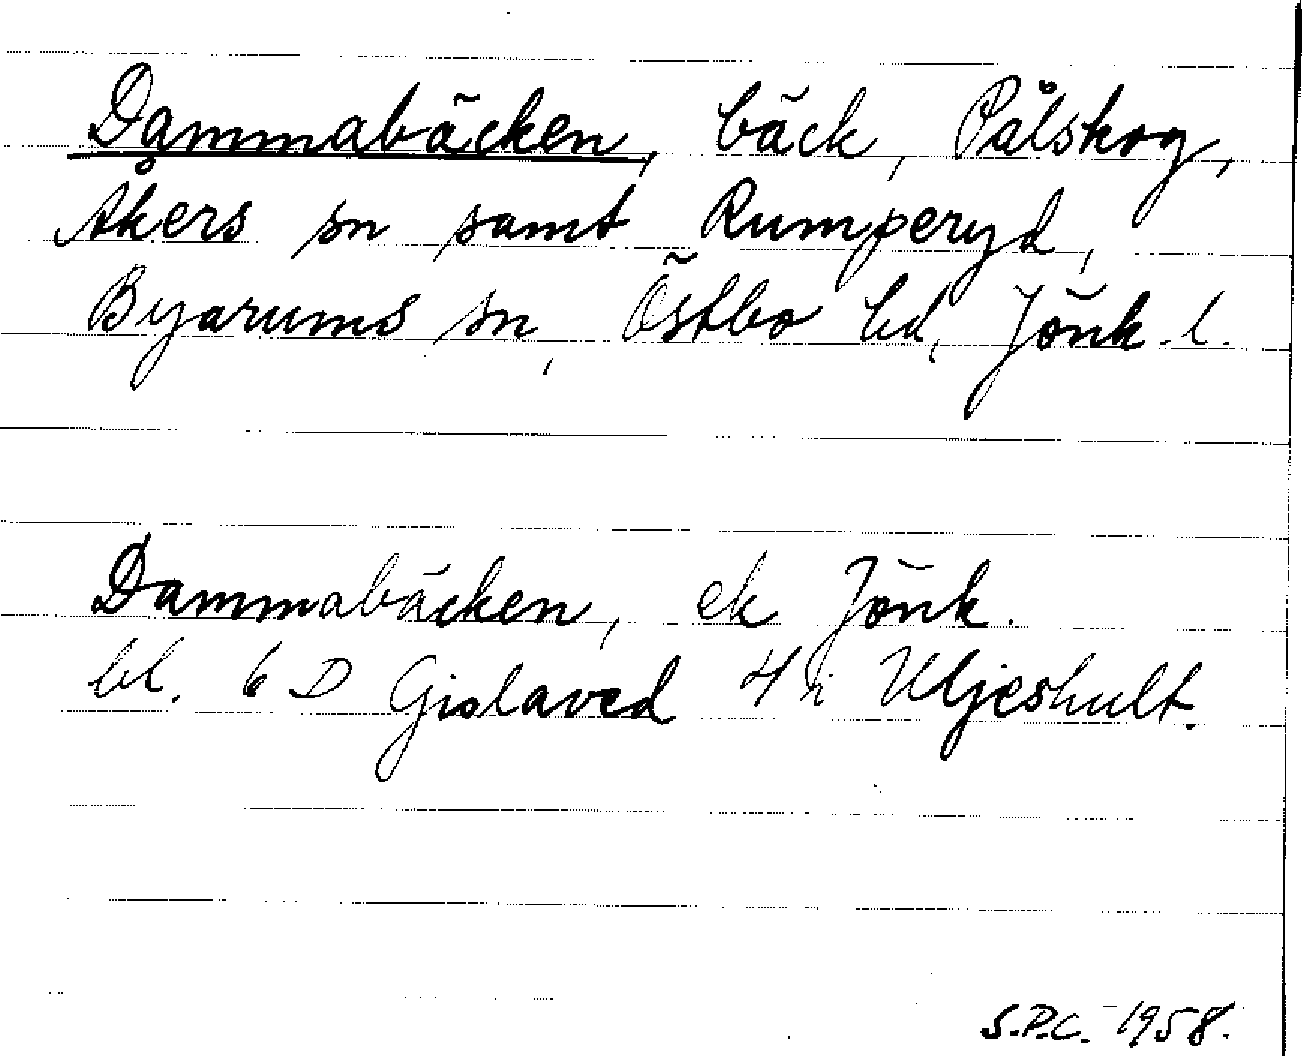 Dammabäcken, bäck, Pålskog,
Åkers sn samt Rumperyd,
Byarums sn, Östbo hd, Jönk. l.
Dammabäcken, ek Jönk.
bl. 6 D Gislaved 4 i Uljeshult.
S.P.C. 1958.